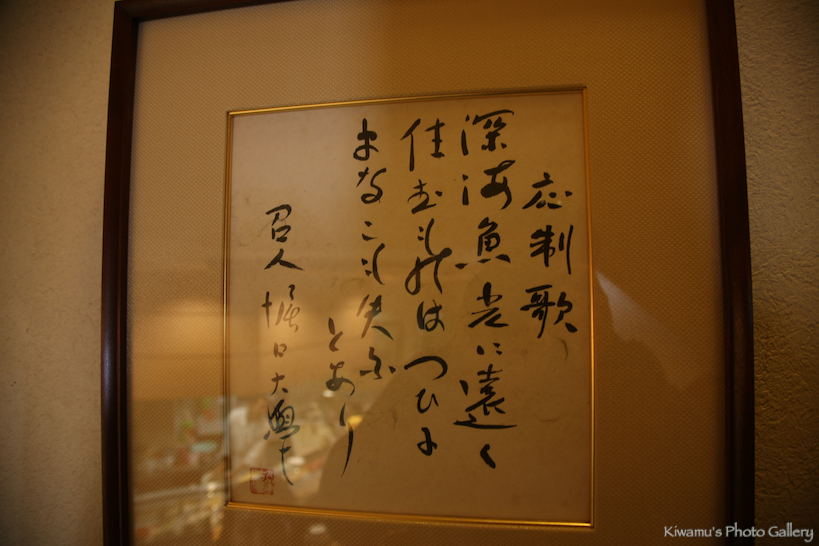 応制歌
深海魚光に遠く
住むものはつひに
まなこも失ふ
とあり
召人 堀口大學
Kiwamu's Photo Gallery